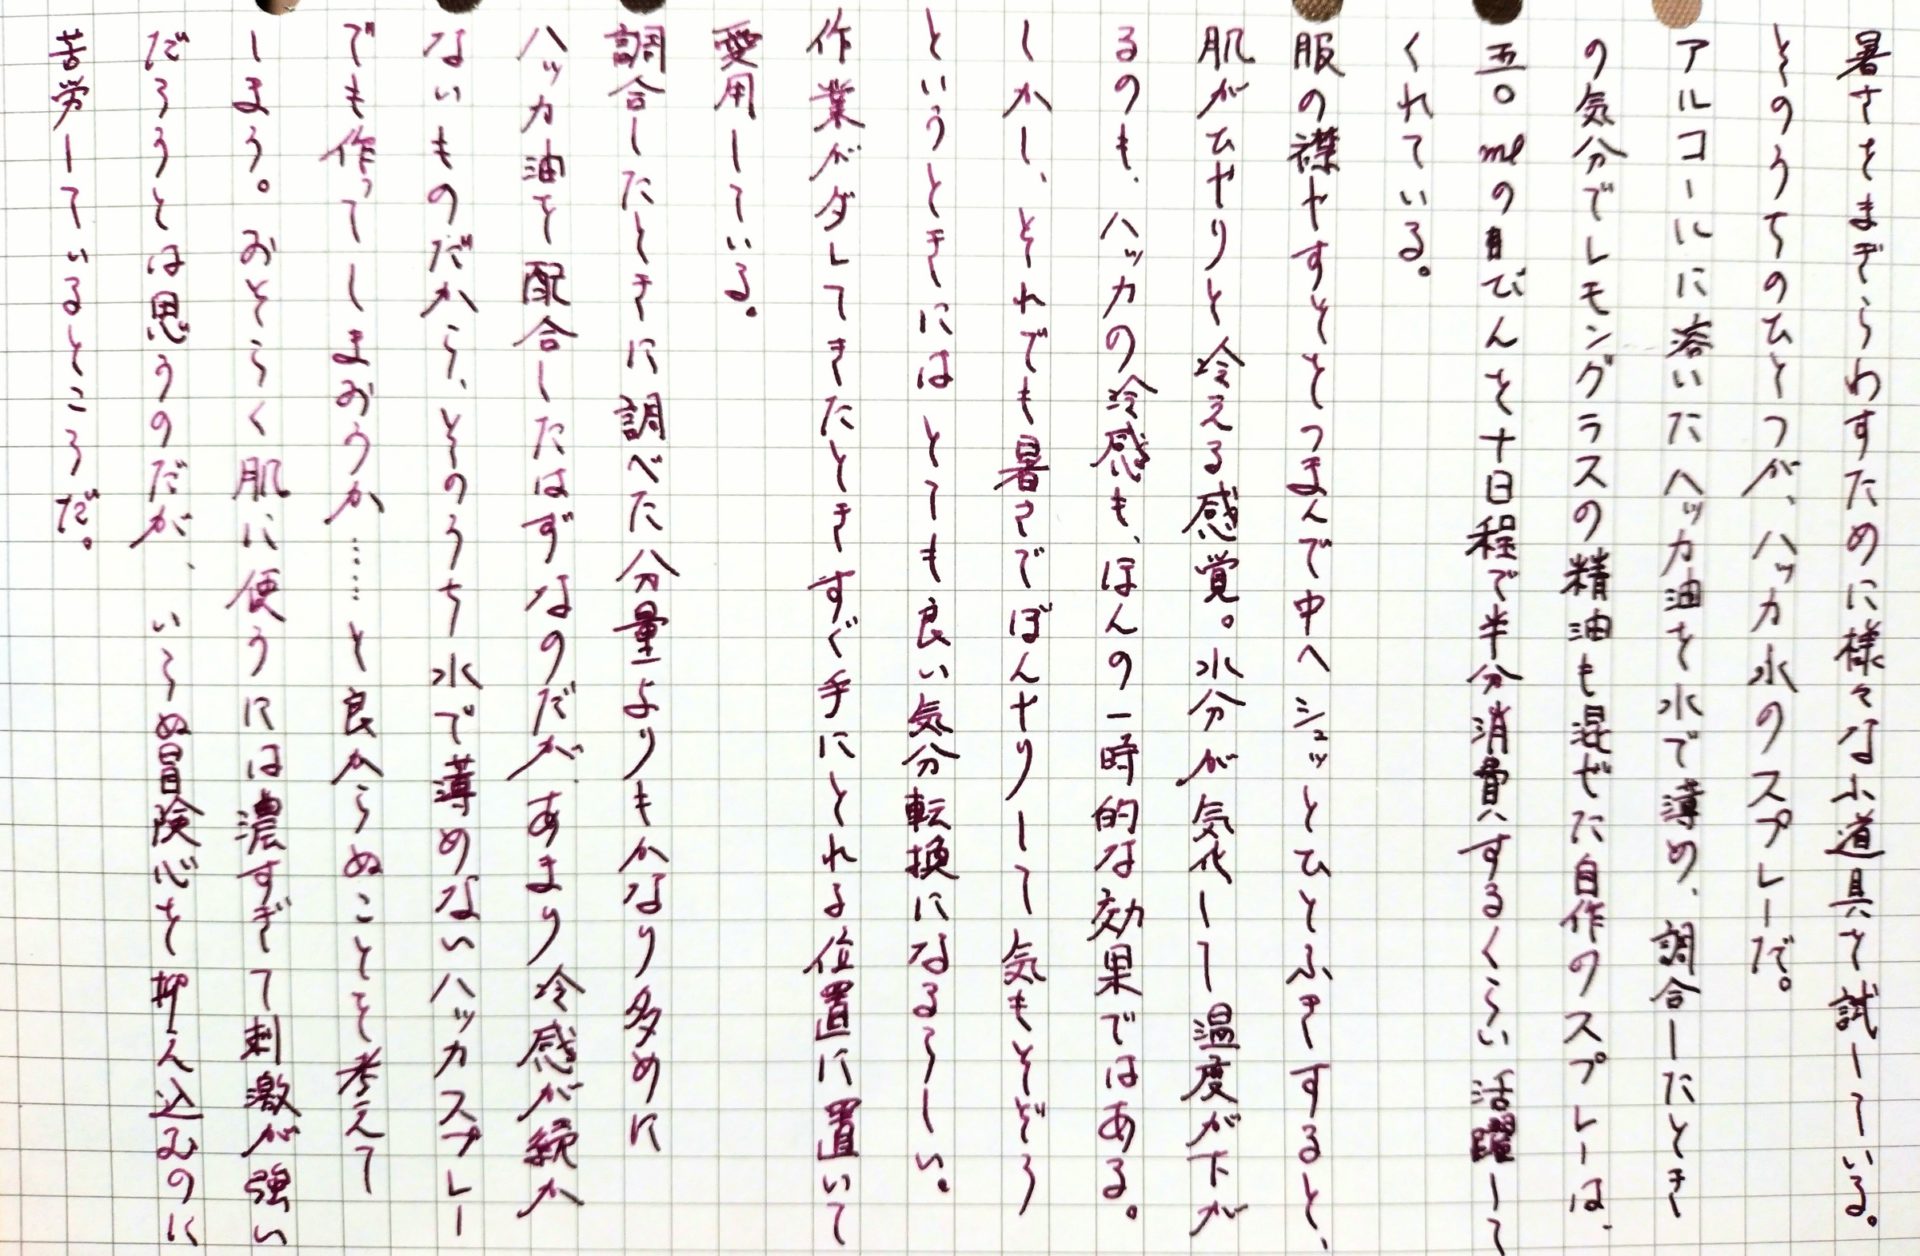 暑さをまぎらわすために様々な小道具を試している。
そのうちのひとつが、ハッカ水のスプレーだ。
アルコールに溶いたハッカ油を水で薄め、調合したとき
の気分でレモングラスの精油も混ぜた自作のスプレーは、
五〇mlの小びんを十日程で半分消費するくらい活躍して
くれている。
服の襟やすそをつまんで中へシュッとひとふきすると、
肌がひやりと冷える感覚。水分が気化して温度が下が
るのも、ハッカの冷感も、ほんの一時的な効果ではある。
しかし、それでも暑さでぼんやりして気もそぞろ
というときにはとても良い気分転換になるらしい。
作業がダレてきたときすぐ手にとれる位置に置いて
愛用している。
調合したときに調べた分量よりもかなり多めに
ハッカ油を配合したはずなのだが、あまり冷感が続か
ないものだから、そのうち水で薄めないハッカスプレー
でも作ってしまおうか……と良からぬことを考えて
しまう。おそらく肌に使うには濃すぎて刺激が強い
だろうとは思うのだが、いらぬ冒険心を抑え込むのに
苦労しているところだ。